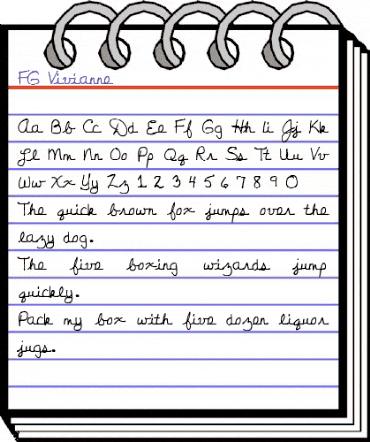 FG Vivianne
Aa Bb Cc Dd Ee Ff Gg Hh Ii Jj Kk
Ll Mm Nn Oo Pp Qq Rr Ss Tt Uu Vv
Ww Xx Yy Zz 1 2 3 4 5 6 7 8 9 0
The quick brown fox jumps over the
lazy dog.
The five boxing wizards jump
quickly.
Pack my box with five dozen liquor
jugs.